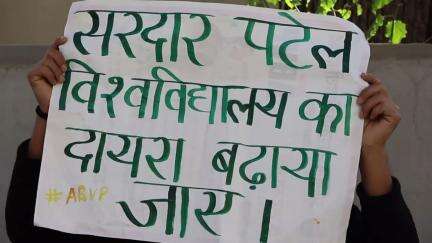 सरदार पटेल
विश्वविद्यालय का
दायरा बढ़ाया
#ABVP जाए।